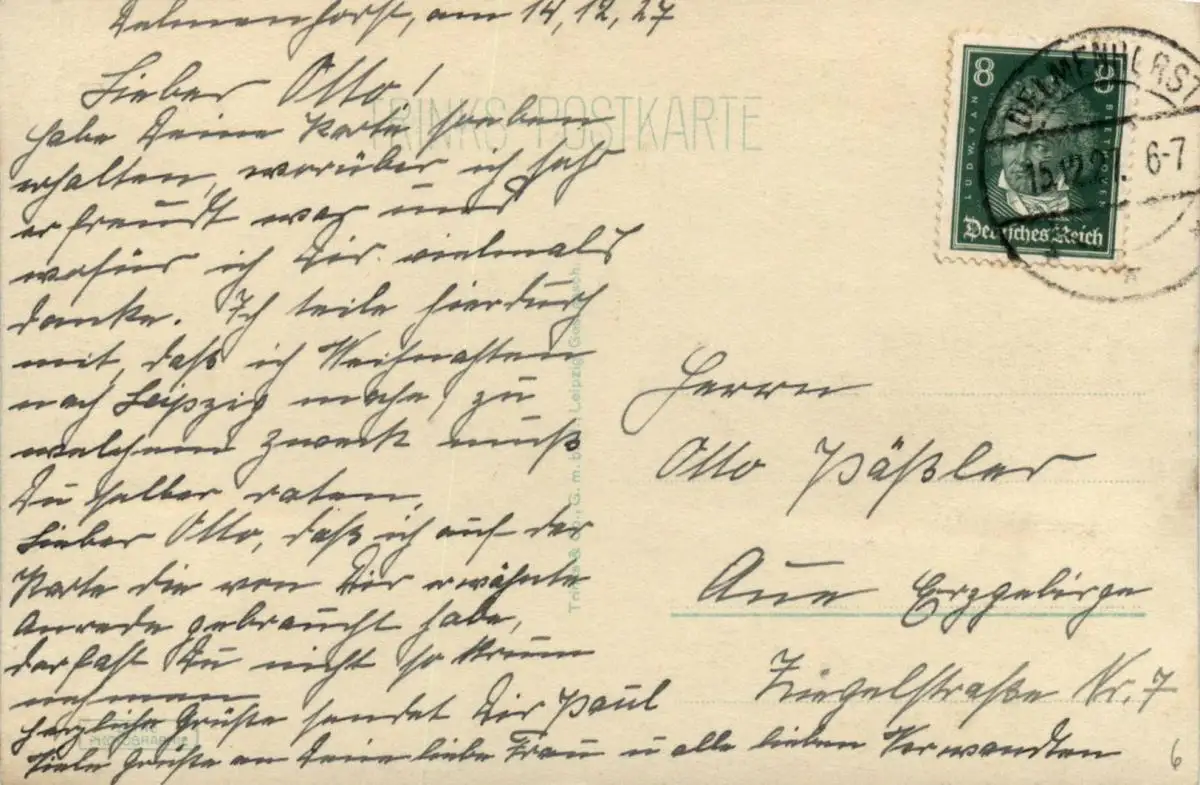 Delmenhorst, am 14, 12, 27
Lieber Otto!
TRINKS POSTKARTE
habe Deine Karte soeben
erhalten, worüber ich sehr
erfreudt war und
wofür ich Dir vielmals
danke. Ich teile hierdurch
mit, daß ich Weihnachten
nach Leipzig mache, zu
welchem Zweck muß
Du selber raten,
Lieber Otto, daß ich auf der
Karte die von Dir erwähnte
Anrede gebraucht habe,
darfast Du nicht so krum
nehmen
herzliche Grüße sendet Dir Paul
Viele Grüße an Deine liebe Frau u alle lieben Verwandten
Trinks & Co., G. m. b. H., Leipzig
8 8
LUDW. VAN BEETHOVEN
Deutsches Reich
DELMENHORST
15.12.27. 6-7
Herrn
Otto Päßler
Aue Erzgebirge
Ziegelstraße Nr. 7
6